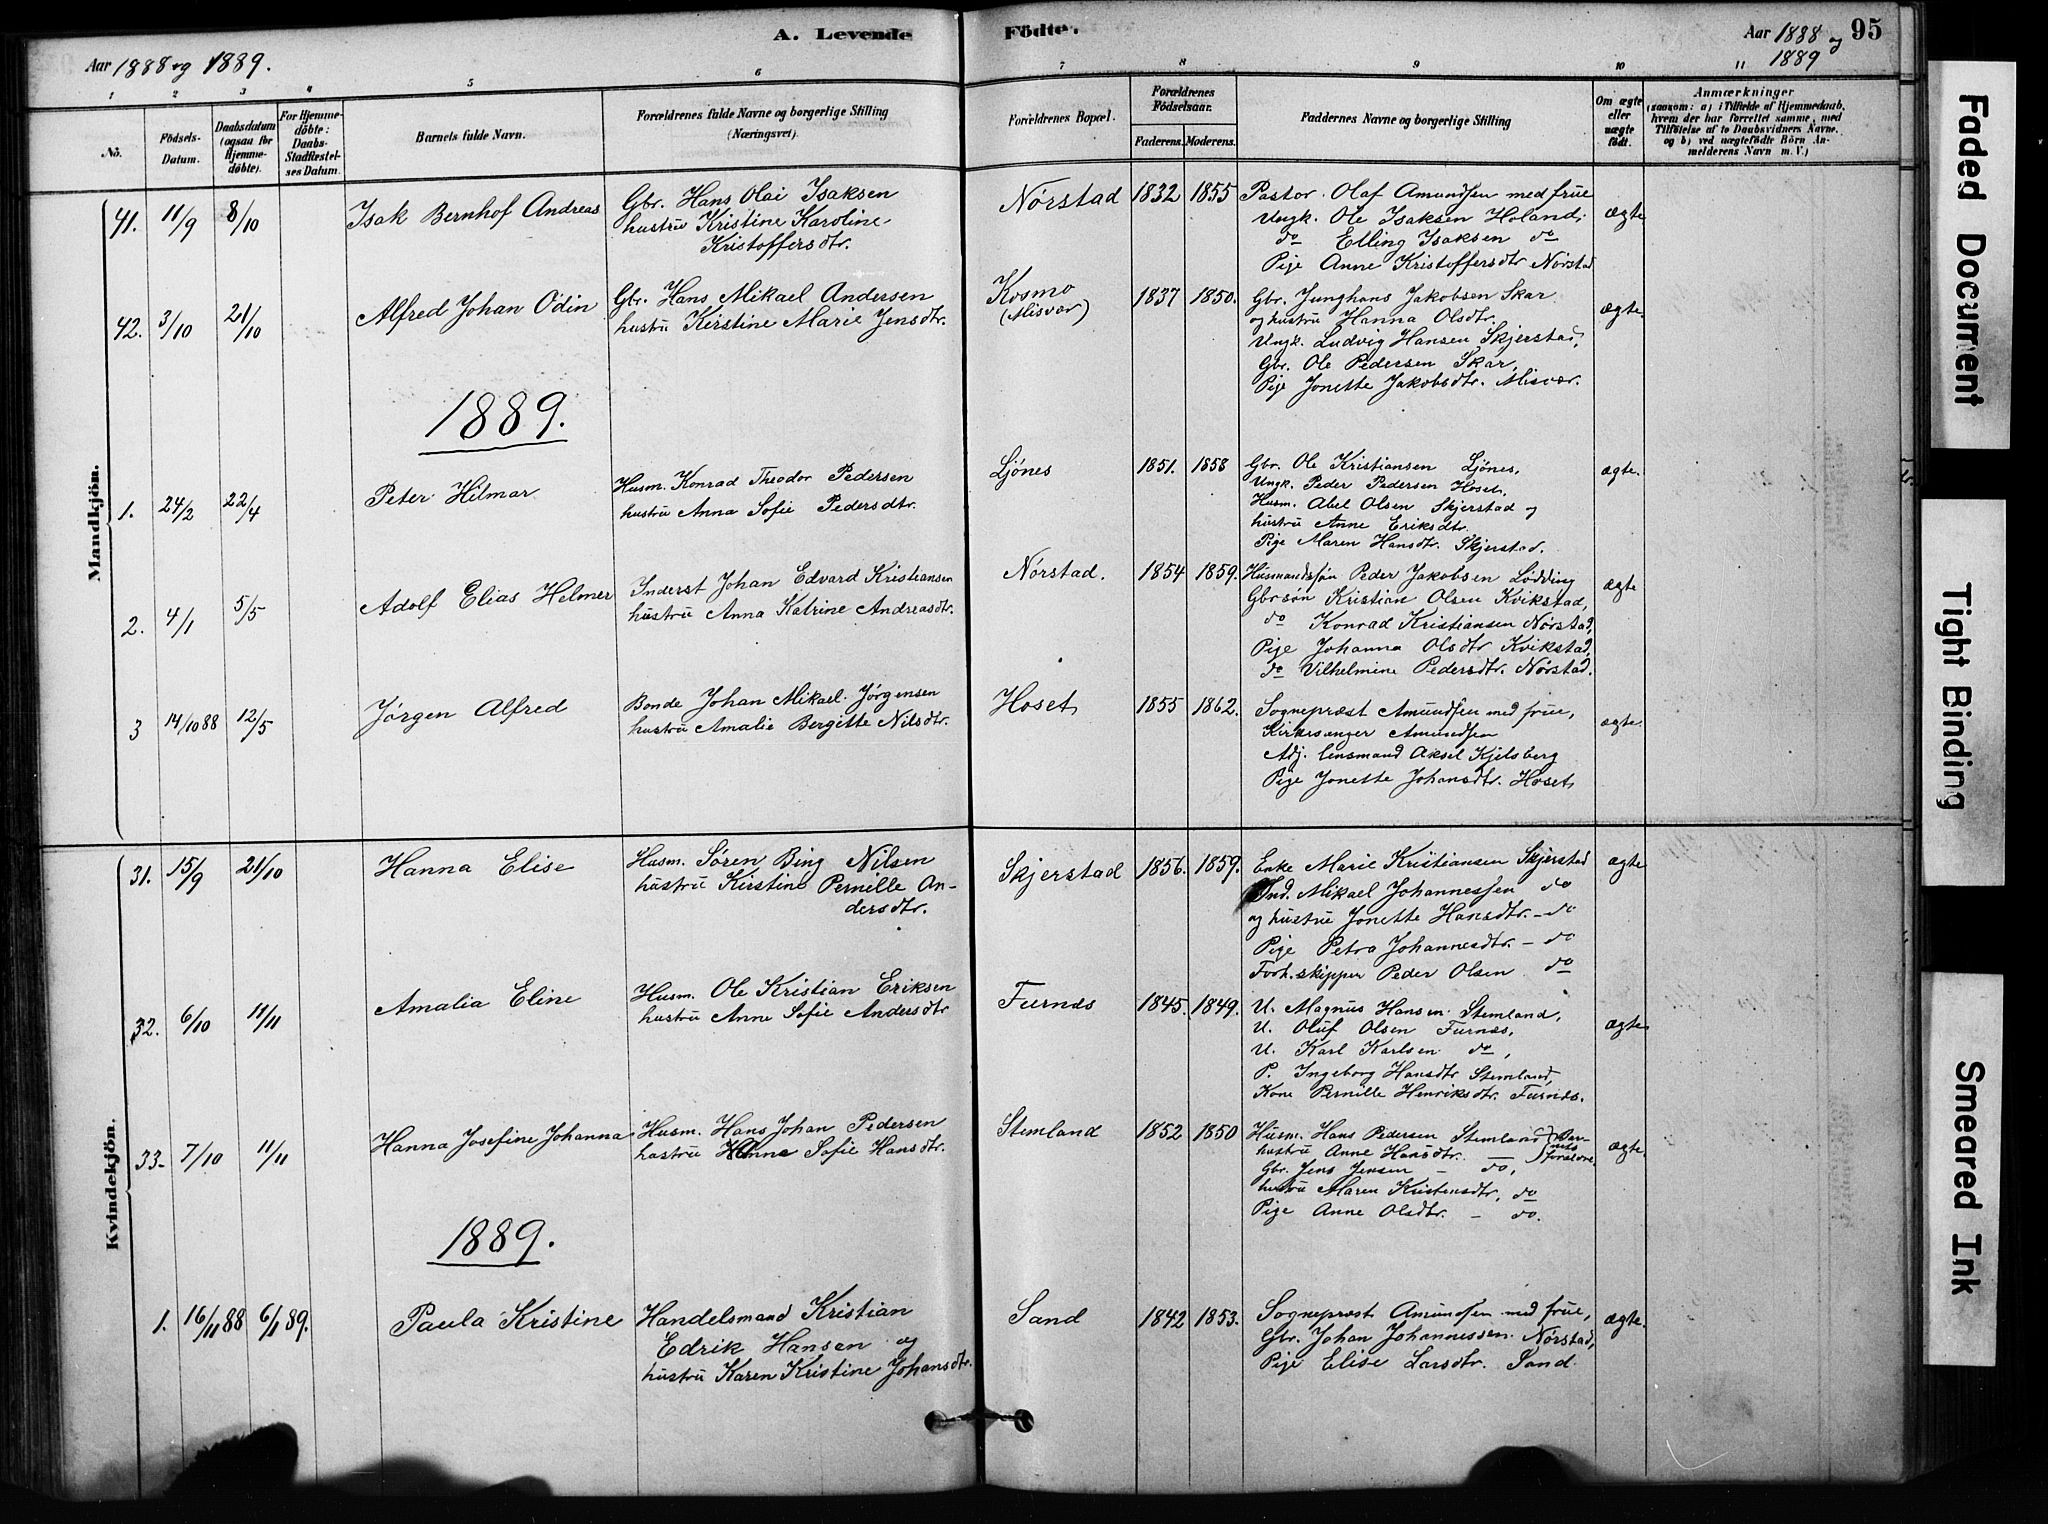 A. Levende Fødte.
Aar 1888 og 1889.
Aar 1888 og 1889
95
1 2 3 4 5 6 7 8 9 10 11
No.
Födsels-Datum.
Daabsdatum (ogsaa for Hjemme-døbte).
For Hjemme-døbte: Daabs-Stadfæstel-ses Datum.
Barnets fulde Navn.
Forældrenes fulde Navne og borgerlige Stilling (Næringsvei).
Forældrenes Bopæl.
Forældrenes Födselsaar.
Faderens. Moderens.
Faddernes Navne og borgerlige Stilling
Om ægte eller uægte født.
Anmærkninger
(saasom: a) i Tilfælde af Hjemmedaab, hvem der har forrettet samme, med Tilføielse af to Daabsvidners Navne, og b) ved uægtefødte Børn An-melderens Navn m. V.)
Mandkjön.
41. 11/9 8/10 Isak Bernhof Andreas
Gbr. Hans Olai Isaksen
hustru Kristine Karoline
Kristoffersdtr.
Nørstad 1832 1855
Pastor Olaf Amundsen med frue
Ungk. Ole Isaksen Holand,
do Elling Isaksen do
Pige Anne Kristoffersdtr Nørstad
ægte
42. 3/10 21/10 Alfred Johan Odin
Gbr. Hans Mikael Andersen
hustru Kirstine Marie Jensdtr.
Kosmo
(Misvær)
1837 1850.
Gbr. Junghans Jakobsen Skar
og hustru Hanna Olsdtr.
Ungk. Ludvig Hansen Skjerstad,
Gbr. Ole Pedersen Skar,
Pige Jonette Jakobsdtr. Misvær.
ægte.
1889.
1. 24/2 22/4 Peter Hilmar
Husm. Konrad Theodor Pedersen
hustru Anna Sofie Pedersdtr.
Ljönes 1851. 1858
Gbr. Ole Kristiansen Ljönes,
Ungk. Peder Pedersen Hoset,
Husm. Abel Olsen Skjerstad og
hustru Anne Eriksdtr.
Pige Maren Hansdtr. Skjerstad.
ægte.
2. 4/1 5/5 Adolf Elias Helmer
Inderst Johan Edvard Kristiansen
hustru Anna Katrine Andreasdtr.
Nørstad. 1854 1859.
Husmandssøn Peder Jakobsen Lødding
Gbrsøn Kristian Olsen Kvikstad,
do Konrad Kristiansen Nørstad,
Pige Johanna Olsdtr Kvikstad,
do Vilhelmine Pedersdtr. Nørstad.
ægte
3 14/10 88 12/5 Jørgen Alfred
Bonde Johan Mikael Jørgensen
hustru Amalie Bergitte Nilsdtr.
Hoset 1855 1862.
Sognepræst Amundsen med frue,
Kirkesanger Amundsen
Adj. lensmand Aksel Kjelsberg
Pige Jonette Johansdtr. Hoset
ægte.
Kvindekjön.
31. 15/9 21/10 Hanna Elise
Husm. Søren Bing Nilsen
hustru Kirstine Pernille An-
dersdtr.
Skjerstad 1856. 1859.
Enke Marie Kristiansen Skjerstad
Ind. Mikael Johannessen do
og hustru Jonette Hansdtr. - do
Pige Petra Johannesdtr. - do
Forh. skipper Peder Olsen do
ægte
32. 6/10 11/11 Amalia Eline
Husm. Ole Kristian Eriksen
hustru Anne Sofie Andersdtr
Furnes 1845. 1849.
U. Magnus Hansen Stemland,
U. Oluf Olsen Furnæs,
U. Karl Karlsen do,
P. Ingeborg Hansdtr Stemland,
Kone Pernille Henriksdtr. Furnæs.
ægte
33- 7/10 11/11 Hanna Josefine Johanna
Husm. Hans Johan Pedersen
hustru Hanna Sofie Hansdtr.
Stemland 1852 1850
Husm. Hans Pedersen Stemland
hustru Anne Hansdtr. —
Gbr. Jens Jensen - do,
hustru Maren Kristensdtr, do
Pige Anne Olsdtr. - do.
ægte.
1889.
1. 16/11 88 6/1 89. Paula Kristine
Handelsmand Kristian
Edrik Hansen og
hustru Karen Kristine Johansdtr.
Sand 1842 1853.
Sognepræst Amundsen med frue,
Gbr. Johan Johannessen Nørstad,
Pige Elise Larsdtr. Sand.
ægte.
Faded Document
Tight Binding
Smeared Ink